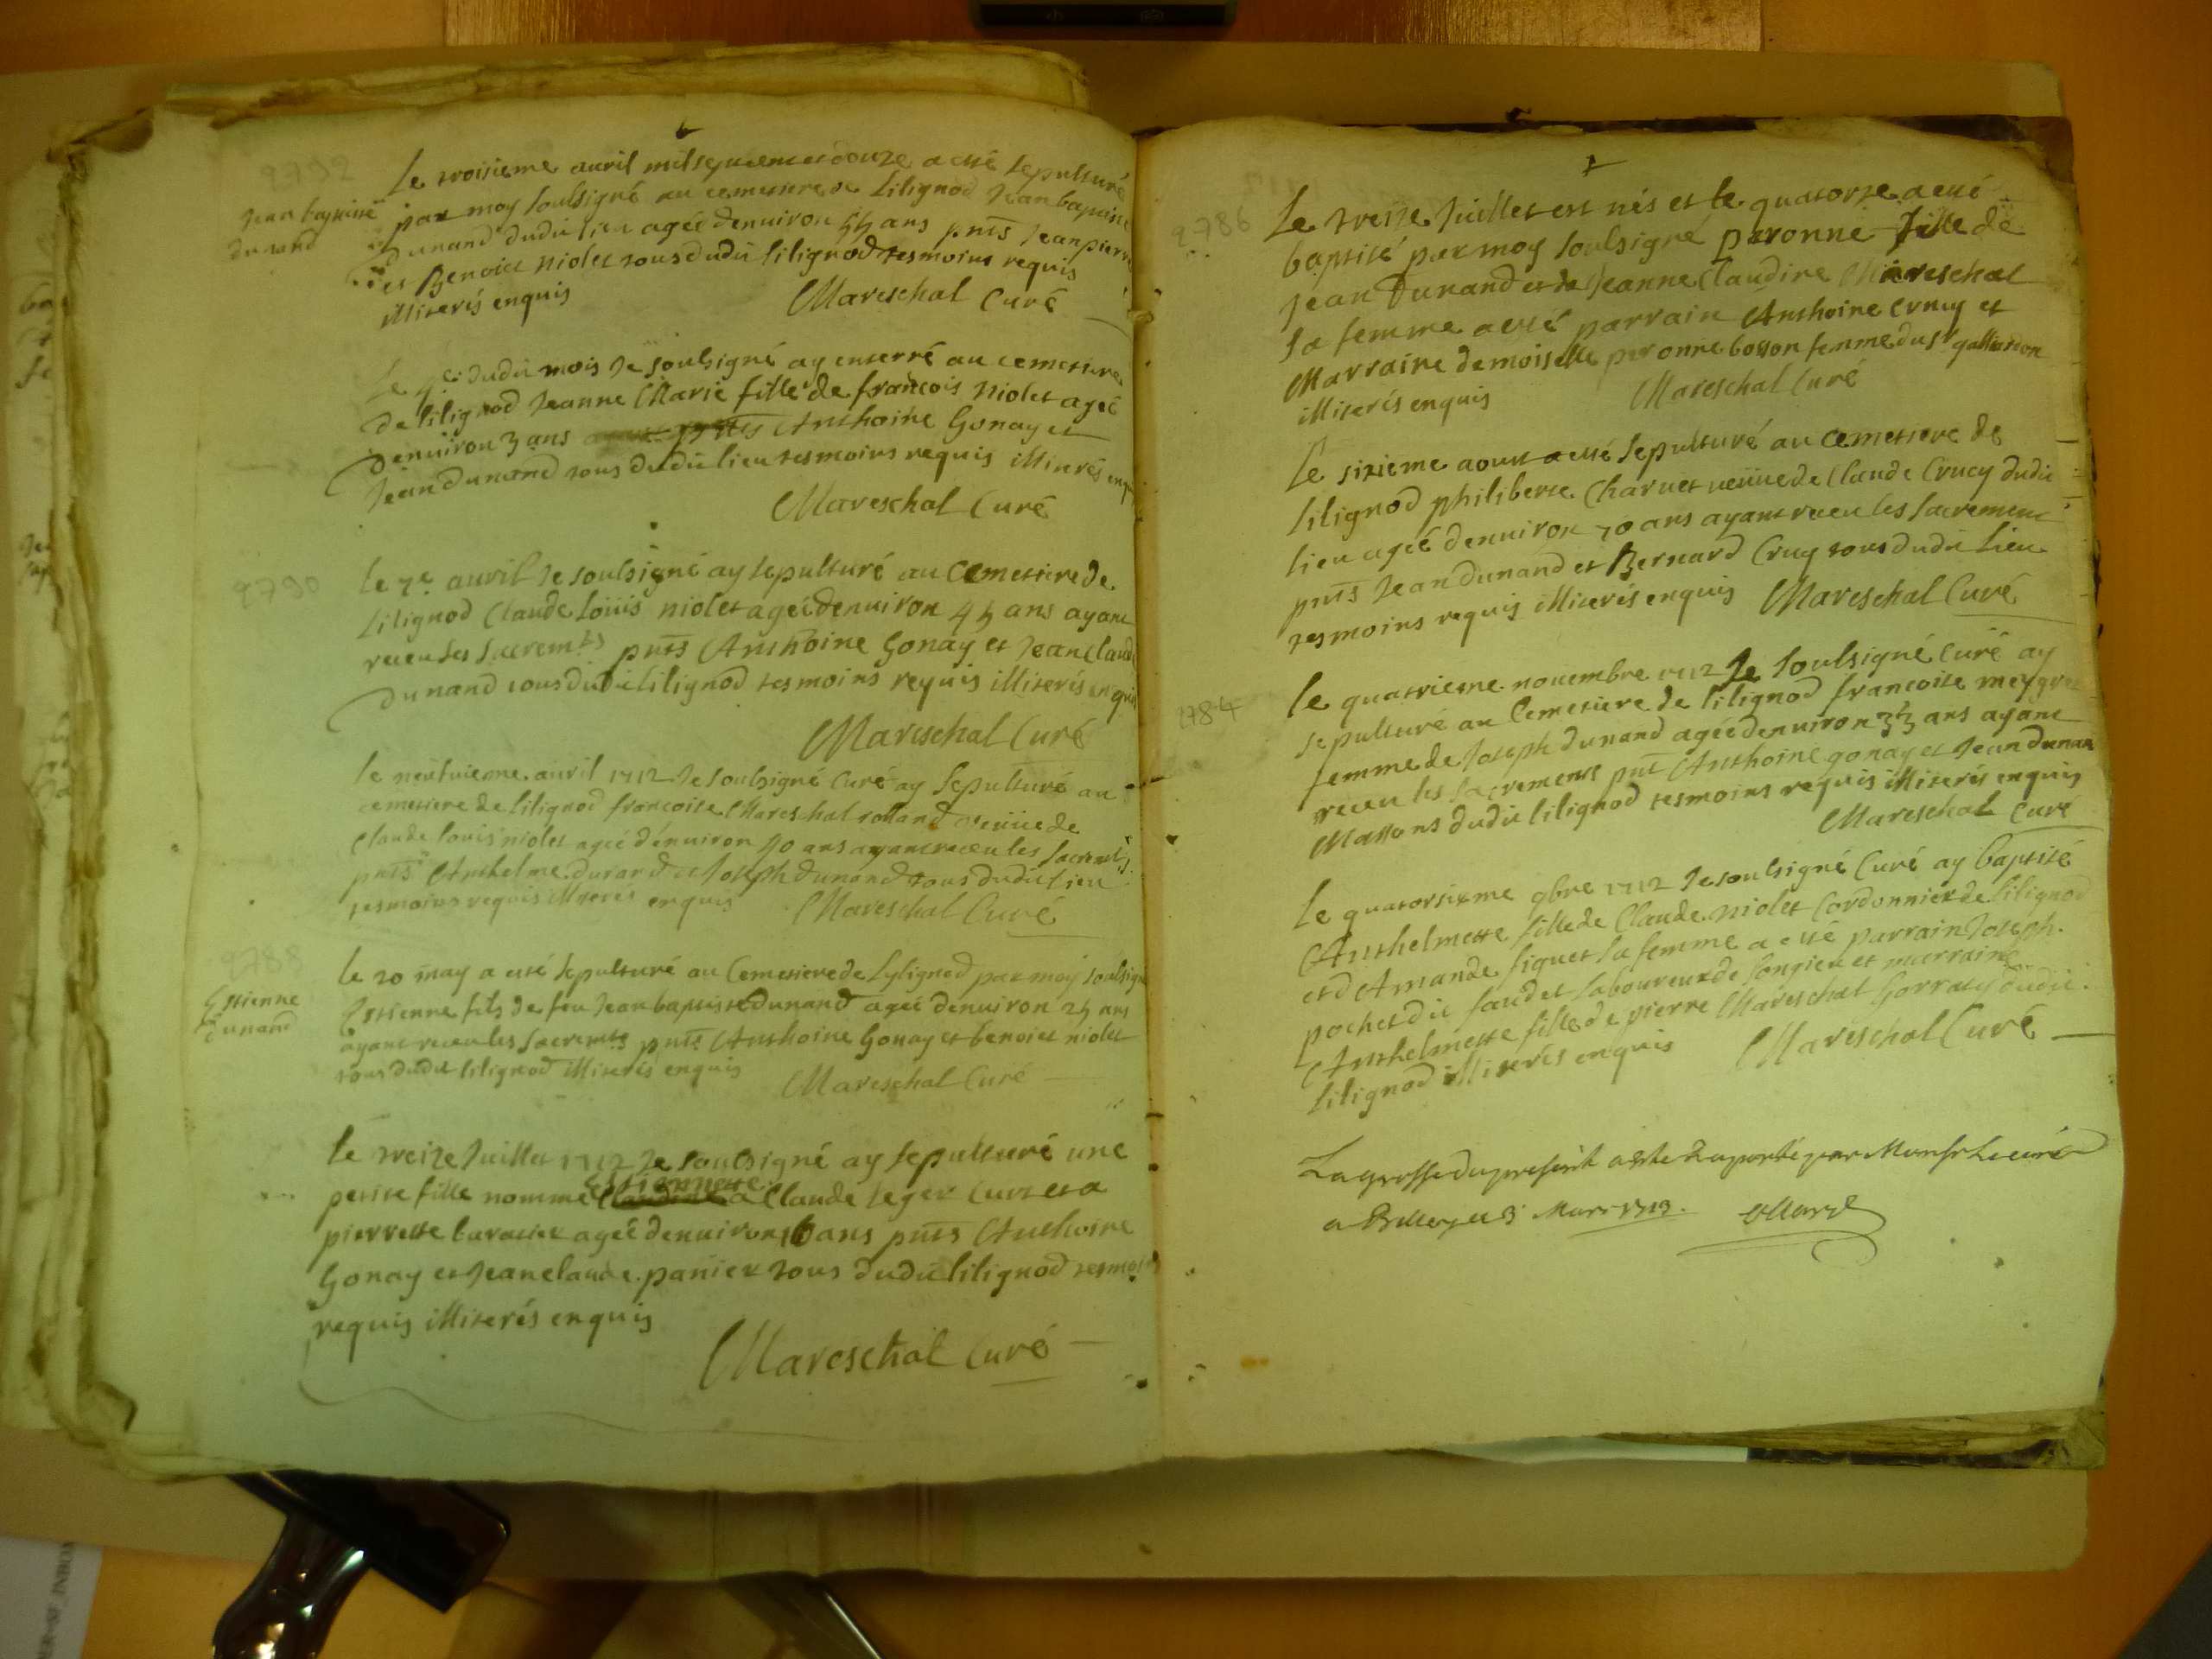 9792
Jean baptiste
dunand
Le troisieme auril mil sept cent et douze a esté sepulturé
par moy soulsigné au cemetiere de lilignod Jean baptiste
dunand dudit lieu agéé denuiron 55 ans pnts Jean pierre
et Benoict niolet tous dudit lilignod tesmoins requis
illiterés enquis Mareschal Curé
Le 4e dudit mois Je soulsigné ay enterré au cemetiere
de lilignod Jeanne Marie fille de francois niolet ageé
denuiron 3 ans pnts Anthoine Gonay et
Jean dunand tous dudit lieu tesmoins requis illiterés enquis
Mareschal Curé
9790
le 7e auril Je soulsigné ay sepulturé au Cemetiere de
lilignod Claude loüis niolet ageé denuiron 45 ans ayant
receu les sacremts pnts Anthoine Gonay et Jean claude
dunand tous dudit lilignod tesmoins requis illiterés enquis
Mareschal Curé
le neufuieme auril 1712 Je soulsigné Curé ay sepulturé au
cemetiere de lilignod francoise Mareschal rolland veüue de
Claude louis niolet ageé denuiron 40 ans ayant receu les sacremts
pnts Anthelme durand et Joseph dunand tous dudit lieu
tesmoins requis illiterés enquis Mareschal Curé
9788
Estienne
dunand
le 20 may a esté sepulturé au Cemetiere de lylignod par moy soulsigné
Estienne fils de feu Jean baptiste dunand ageé denuiron 25 ans
ayant receu les sacremts pnts Anthoine Gonay et benoict niolet
tous dudit lilignod illiterés enquis Mareschal Curé
le treize Juillet 1712 Je soulsigné ay sepulturé une
Estiennette
petite fille nommé Claudine a Claude leger Curtet a
pierrette agéé denuiron 6 ans pnts Anthoine
Gonay et Jean claude panier tous dudit lilignod tesmoins
requis illiterés enquis
Mareschal Curé
9786
Le treize Juillet est nés et le quatorze a esté
baptisé par moy soulsigné peronne fille de
Jean Dunand et de Jeanne Claudine Mareschal
sa femme a esté parrain Anthoine Crucy et
Marraine demoiselle peronne bosson femme du sr
illiterés enquis Mareschal Curé
Le sixieme aoust a esté sepulturé au cemetiere de
lilignod philiberte Charuet veüue de Claude Crucy dudit
lieu ageé denuiron 70 ans ayant receu les sacrement
pnts Jean dunand et Bernard Crucy tous dudit lieu
tesmoins requis illiterés enquis Mareschal Curé
9784
le quatrieme nouembre 1712 Je soulsigné Curé ay
sepulturé au Cemetiere de lilignod francoise
femme de Joseph dunand ageé denuiron 33 ans ayant
receu les sacrements pnt Anthoine gonay et Jean dunand
Massons dudit lilignod tesmoins requis illiterés enquis
Mareschal Curé
le quatorsieme 9bre 1712 Je soulsigné Curé ay baptisé
Anthelmette fille de Claude niolet Cordonnier de lilignod
et d'Amande figuet sa femme a esté parrain Joseph
pochet dit faudet laboureur de songieu et marraine
Anthelmette fille de pierre Mareschal Gorraty dudit
lilignod illiterés enquis Mareschal Curé
La grosse du present a esté raportée par Monsr le curé
a Belley ce 3 Mars 1713.